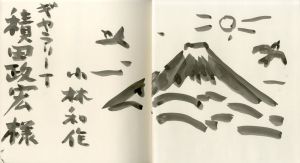 小林和作
ギャラリー
積田政宏様